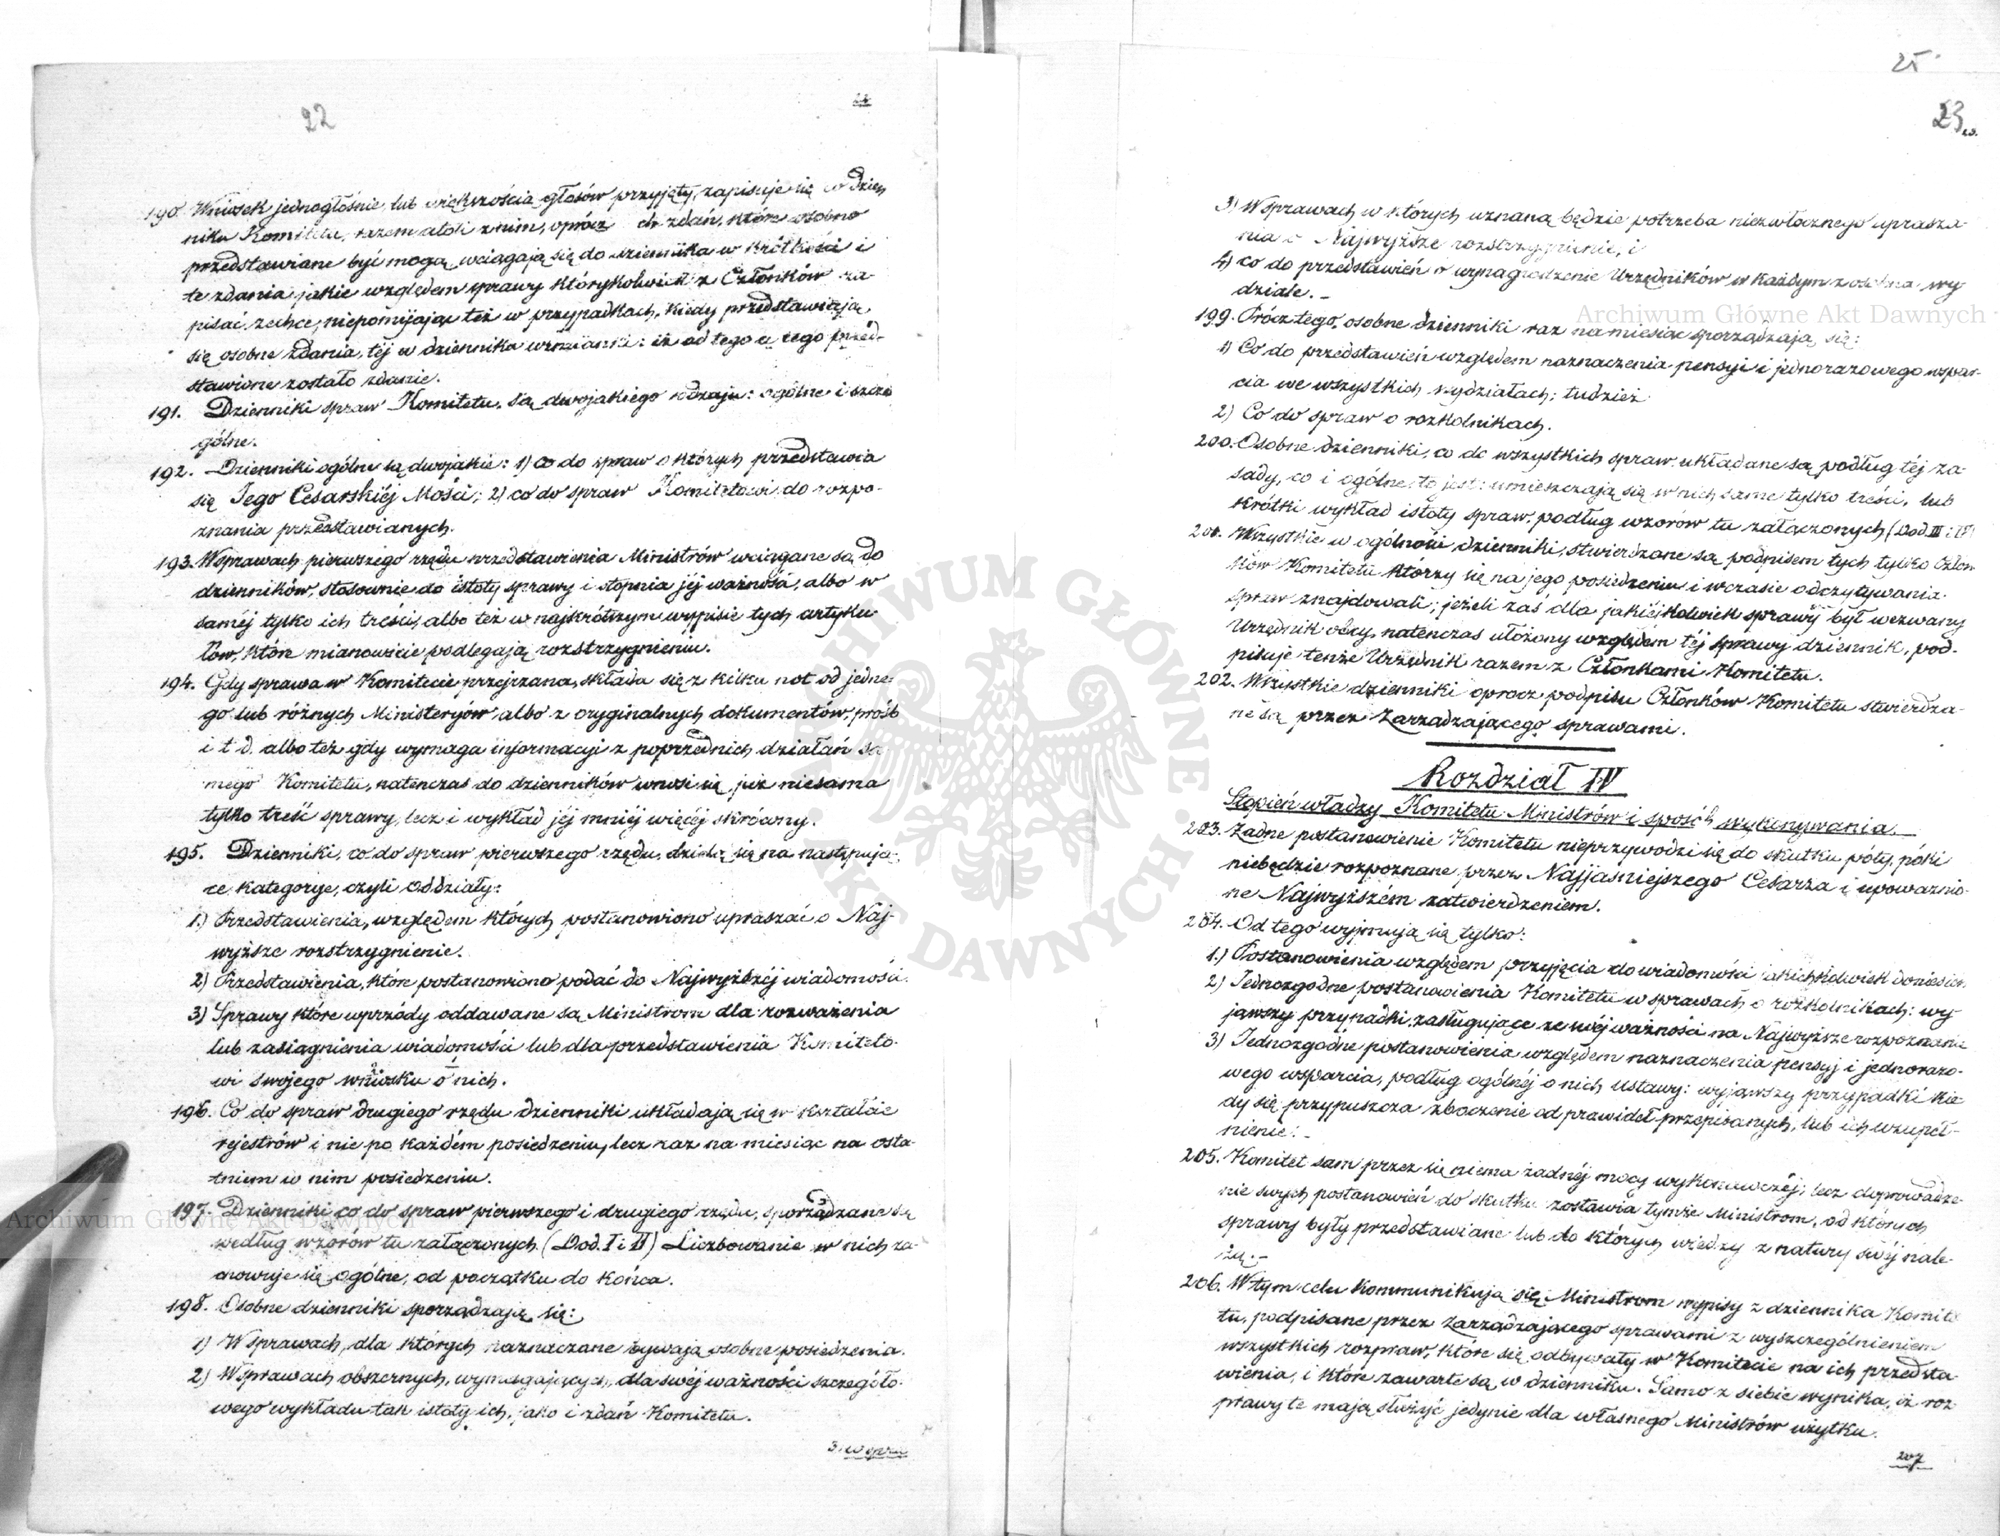 22
22
190. Wniosek jednogłośnie, lub większością głosów przyjęty, zapisuje się do dzien
nika Komitetu, razem zaś z nim, oprócz zdań, które osobno
przedstawiane być mogą, wciągają się do dziennika w krótkości i
te zdania, jakie względem sprawy którykolwiek z Członków za-
pisać zechce, niepomijając też w przypadkach, kiedy przedstawiają
się osobne zdania, téj w dzienniku wzmianki: iż od tego a tego przed-
stawione zostało zdanie.
191. Dzienniki spraw Komitetu, są dwojakiego rodzaju: ogólne i szcze
gólne.
192. Dzienniki ogólne są dwojakie: 1) co do spraw o których przedstawia
się Jego Cesarskiéj Mości; 2) co do spraw Komitetowi do rozpo-
znania przedstawianych.
193. W sprawach pierwszego rzędu przedstawienia Ministrów wciągane są do
dzienników, stosownie do istoty sprawy i stopnia jéj ważności, albo w
saméj tylko ich treści, albo też w najkrótszym wypisie tych artyku
łów, które mianowicie podlegają rozstrzygnieniu.
194. Gdy sprawa w Komitecie przejrzana, składa się z kilku not od jedne-
go lub różnych Ministeryów albo z oryginalnych dokumentów, prośb
i t d. albo też gdy wymaga informacyi z poprzednich działań sa
mego Komitetu, natenczas do dzienników wnosi się, już niesama
tylko treść sprawy, lecz i wykład jéj mniéj więcéj skrócony.
195. Dzienniki, co do spraw pierwszego rzędu, dzielą się na następują-
ce kategorye, czyli oddziały:
1.) Przedstawienia, względem których postanowiono upraszać o Naj-
wyższe rozstrzygnienie.
2) Przedstawienia, które postanowiono podać do Najwyższéj wiadomości.
3) Sprawy które wprzódy oddawane są Ministrom dla rozważenia
lub zasiągnienia wiadomości lub dla przedstawienia Komiteto-
wi swojego wniosku o nich.
196. Co do spraw drugiego rzędu dzienniki układają się w kształcie
rejestrów i nie po każdém posiedzeniu, lecz raz na miesiąc na osta-
tniem w nim posiedzeniu.
197. Dzienniki co do spraw pierwszego i drugiego rzędu, sporządzane są
według wzorów tu załączonych (Dod. I i II) Liczbowanie w nich za-
chowuje się ogólne, od początku do końca.
198. Osobne dzienniki sporządzają się:
1) W sprawach, dla których naznaczane bywają osobne posiedzenia.
2) W sprawach obszernych, wymagających, dla swéj ważności szczegóło-
wego wykładu tak istoty ich, jako i zdań Komitetu.
3. w spra
25
23
3) W sprawach w których uznaną będzie potrzeba niezwłocznego uprasza-
nia o Najwyższe rozstrzygnienie, i
4) co do przedstawień o wynagrodzenie Urzędników w każdym z osobna wy
dziale. –
199. Prócz tego, osobne dzienniki raz na miesiąc sporządzają się:
1) Co do przedstawień względem naznaczenia pensyi i jednorazowego wspar-
cia we wszystkich wydziałach; tudzież
2) Co do spraw o rozkolnikach.
200. Osobne dzienniki, co do wszystkich spraw układane są podług téj za-
sady, co i ogólne, to jest: umieszczają się w nich same tylko treści, lub
krótki wykład istoty spraw, podług wzorów tu załączonych (Dod. III i IV)
201. Wszystkie w ogólności dzienniki, stwierdzane są podpisem tych tylko Człon
ków Komitetu którzy się na jego posiedzeniu i w czasie odczytywania
spraw znajdowali; jeżeli zaś dla jakiéjkolwiek sprawy był wezwany
Urzędnik obcy, natenczas ułożony względem téj sprawy dziennik, pod-
pisuje tenże Urzędnik razem z Członkami Komitetu.
202. Wszystkie dzienniki oprócz podpisu Członków Komitetu stwierdza-
ne są przez Zarządzającego sprawami.
Rozdział IV
Stopień władzy Komitetu Ministrów i sposób wykonywania. –
203. Żadne postanowienie Komitetu nieprzywodzi się do skutku póty, póki
niebędzie rozpoznane przez Najjaśniejszego Cesarza i upoważnio-
ne Najwyższém zatwierdzeniem.
204. Od tego wyjmują się tylko:
1.) Postanowienia względem przyjęcia do wiadomości jakichkolwiek doniesień.
2) Jednozgodne postanowienia Komitetu w sprawach o rozkolnikach: wy
jąwszy przypadki, zasługujące ze swéj ważności na Najwyższe rozpoznanie
3) Jednozgodne postanowienia względem naznaczenia pensyj i jednorazo-
wego wsparcia, podług ogólnéj o nich ustawy: wyjąwszy przypadki kie
dy się przypuszcza zboczenie od prawideł przepisanych, lub ich uzupeł-
nienie: –
205. Komitet sam przez się niema żadnéj mocy wykonawczéj, lecz doprowadze-
nie swych postanowień do skutku zostawia tymże Ministrom, od których
sprawy były przedstawiane lub do których wiedzy z natury swéj nale-
żą. –
206. W tym celu kommunikują się Ministrom wypisy z dziennika Komite
tu, podpisane przez Zarządzającego sprawami z wyszczególnieniem
wszystkich rozpraw, które się odbywały w Komitecie na ich przedsta-
wienia, i które zawarte są w dzienniku. Samo z siebie wynika, iż roz
prawy te mają służyć jedynie dla własnego Ministrów użytku.
207
Archiwum Główne Akt Dawnych
Archiwum Główne Akt Dawnych
ARCHIWUM GŁÓWNE AKT DAWNYCH